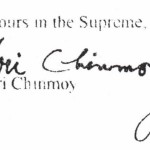 ours in the Supreme,
Sri Chinmoy
ri Chinmoy